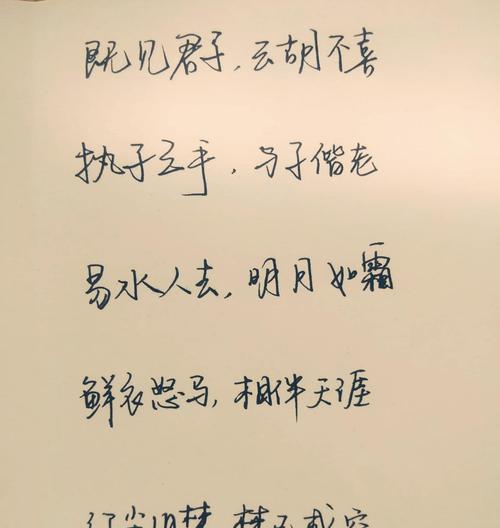 既见君子，云胡不喜
执子之手，与子偕老
易水人去，明月如霜
鲜衣怒马，相伴天涯
红尘旧梦，梦不成空